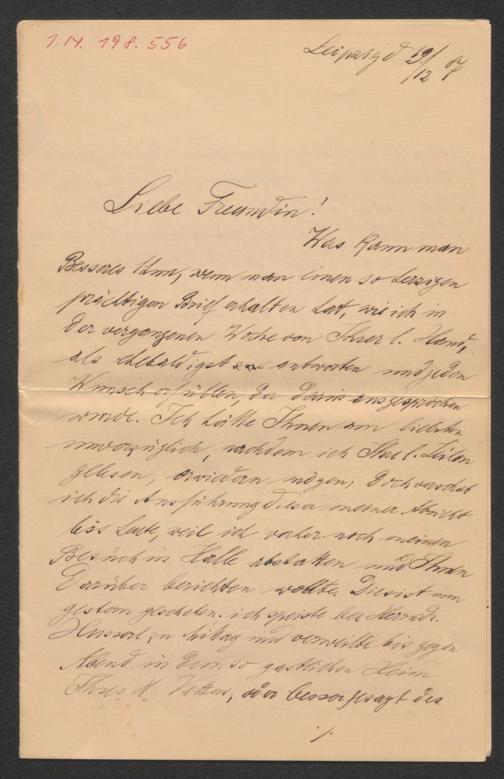 I.N. 198.556
Leipzig d 19/12 7
Liebe Freundin!
Was kann man
Besseres thun, wenn man einen so herzigen
prächtigen Brief erhalten hat, wie ich in
der vergangenen Woche von Ihrer l. Hand,
als ehebaldigst antworten und jeden
Wunsch erfüllen, der darin ausgesprochen
wurde. Ich hätte Ihnen am liebsten
unverzüglich, nachdem ich Ihre l. Zeilen
gelesen, erwiedern mögen; doch verschob
ich die Ausführung dieser meiner Absicht
bis heute, weil ich vorher noch meinen
Besuch in Halle abstatten und Ihnen
darüber berichten wollte. Dies ist nun
gestern geschehen. ich speiste bei Herrn Dr.
Husserl zu Mittag und verweilte bis gegen
Abend in dem so gastlichen Heim
Ihres H. Vetters, oder besser gesagt des
/.